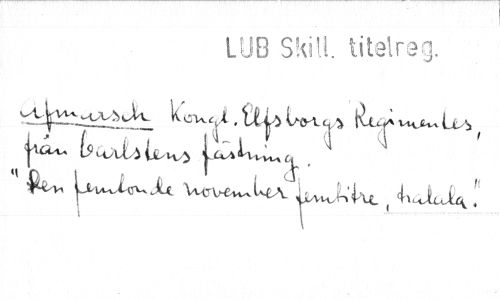 LUB Skill. titelreg.
Afmarsch Kongl. Elfsborgs Regimentes,
från Carlstens fästning.
"Den femtonde november femtitre, tralala."